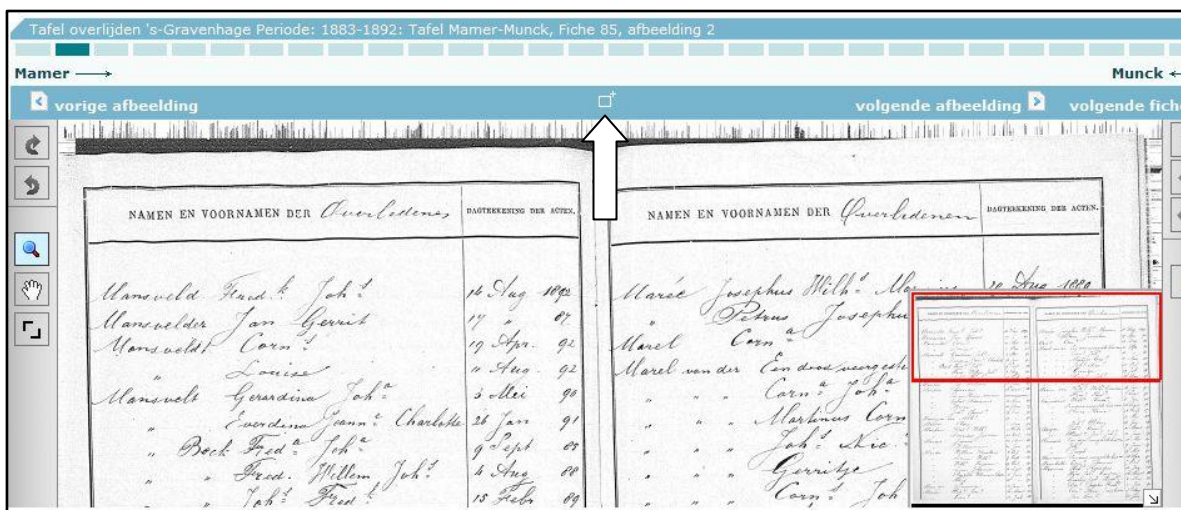 Tafel overlijden 's-Gravenhage Periode: 1883-1892: Tafel Mamer-Munck, Fiche 85, afbeelding 2
Mamer →
Munck ←
vorige afbeelding
volgende afbeelding
volgende fiche
NAMEN EN VOORNAMEN DER Overledenen
DAGTEEKENING DER ACTEN.
Mansveld Fred.k Joh.s 14 Aug 1892
Mansvelder Jan Gerrit 17 " 87
Mansveldt Corn.s 19 Apr. 92
" Louise " Aug. 92
Mansvelt Gerardina Joh.a 5 Mei 90
" Everdina Joann.a Charlotte 26 Jan 91
" Bock Fred.a Joh.a 9 Sept 85
" " Fred. Willem Joh.s 4 Aug 88
" " Joh.s Fred.k 15 Febr 89
NAMEN EN VOORNAMEN DER Overledenen
DAGTEEKENING DER ACTEN.
Marée Josephus Wilh.s Aug 1889
" Petrus Josephu
Marel Corn.a
Marel van der Een doos
" " " Corn.a Joh.a
" " " Martinus Corn
" " " Joh.s Nic.s
" " " Gerritje
" " " Corn.s Joh